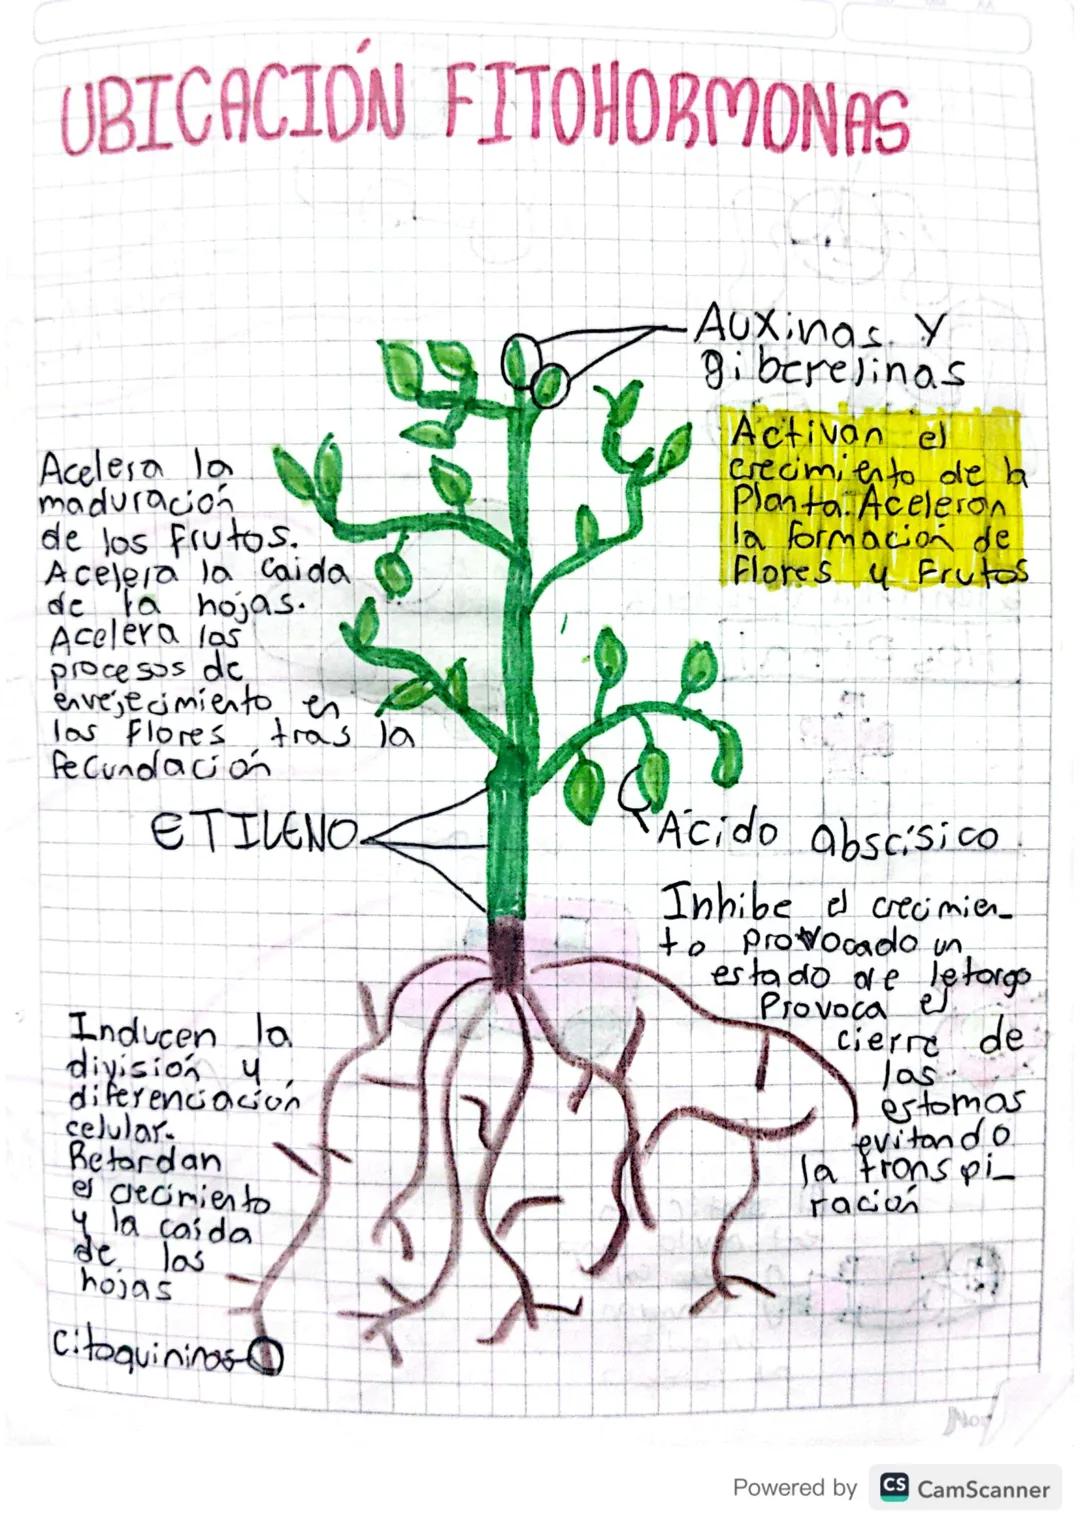 UBICACIÓN FITOHORMONAS
Auxinas y
giberelinas
Activan el
crecimiento de la
Planta. Aceleran
la formación de
Flores y Frutos
Acelera la
maduración
de los frutos.
Acelera la caida
de la hojas.
Acelera los
procesos de
envejecimiento en
las flores tras la
fecundación
ETILENO
Acido abscísico
Inhibe el crecimien_
to provocado un
estado de letargo
Provoca el
cierre de
los
estomas
evitando
la transpi_
ración
Inducen la
división y
diferenciación
celular.
Retardan
el crecimiento
y la caída
de las
hojas
Citoquininas
Powered by CS CamScanner